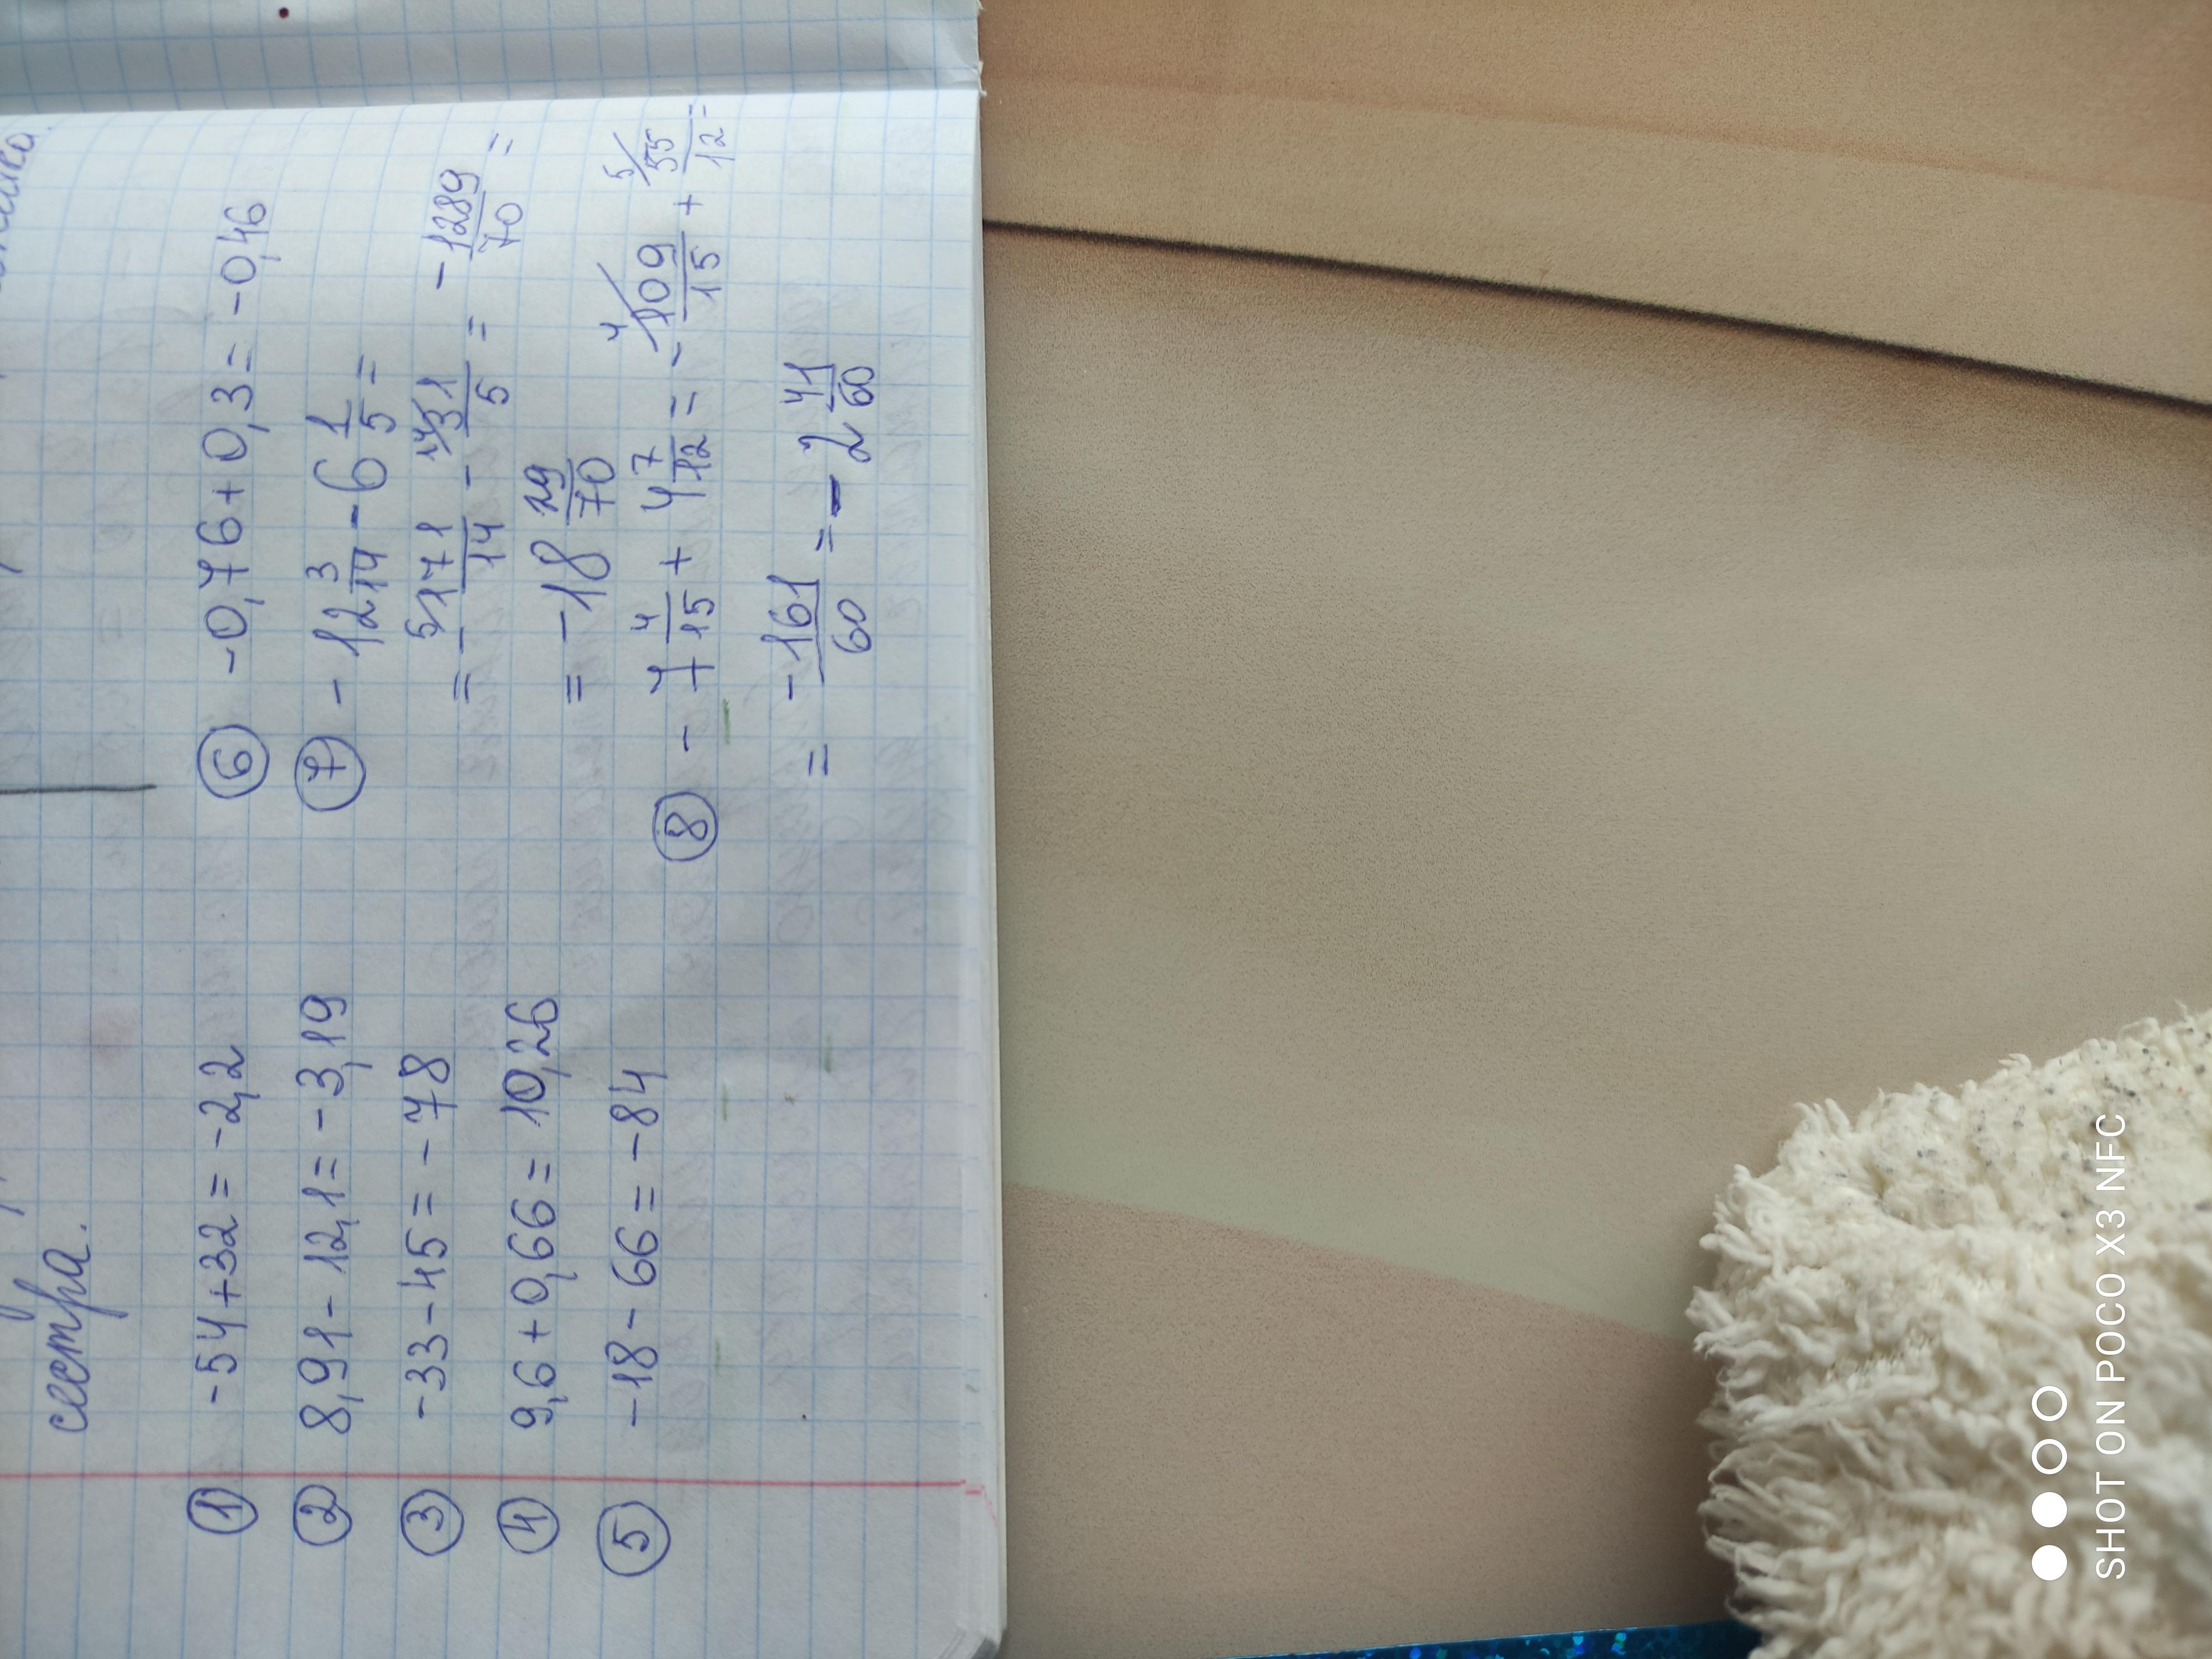 сестра.
① -54+32 = -2,2
② 8,91 - 12,1 = -3,19
③ -33-45 = -78
④ 9,6+0,66 = 10,26
⑤ -18-66 = -84
⑥ -0,76+0,3 = -0,46
⑦ -12 3/14 - 6 1/5 =
= - 5 171/14 - 14 31/5 = - 1289/70 =
= -18 29/70
⑧ - 7 4/15 + 4 7/12 = - 4 109/15 + 5 55/12 =
= - 161/60 = - 2 41/60
SHOT ON POCO X3 NFC